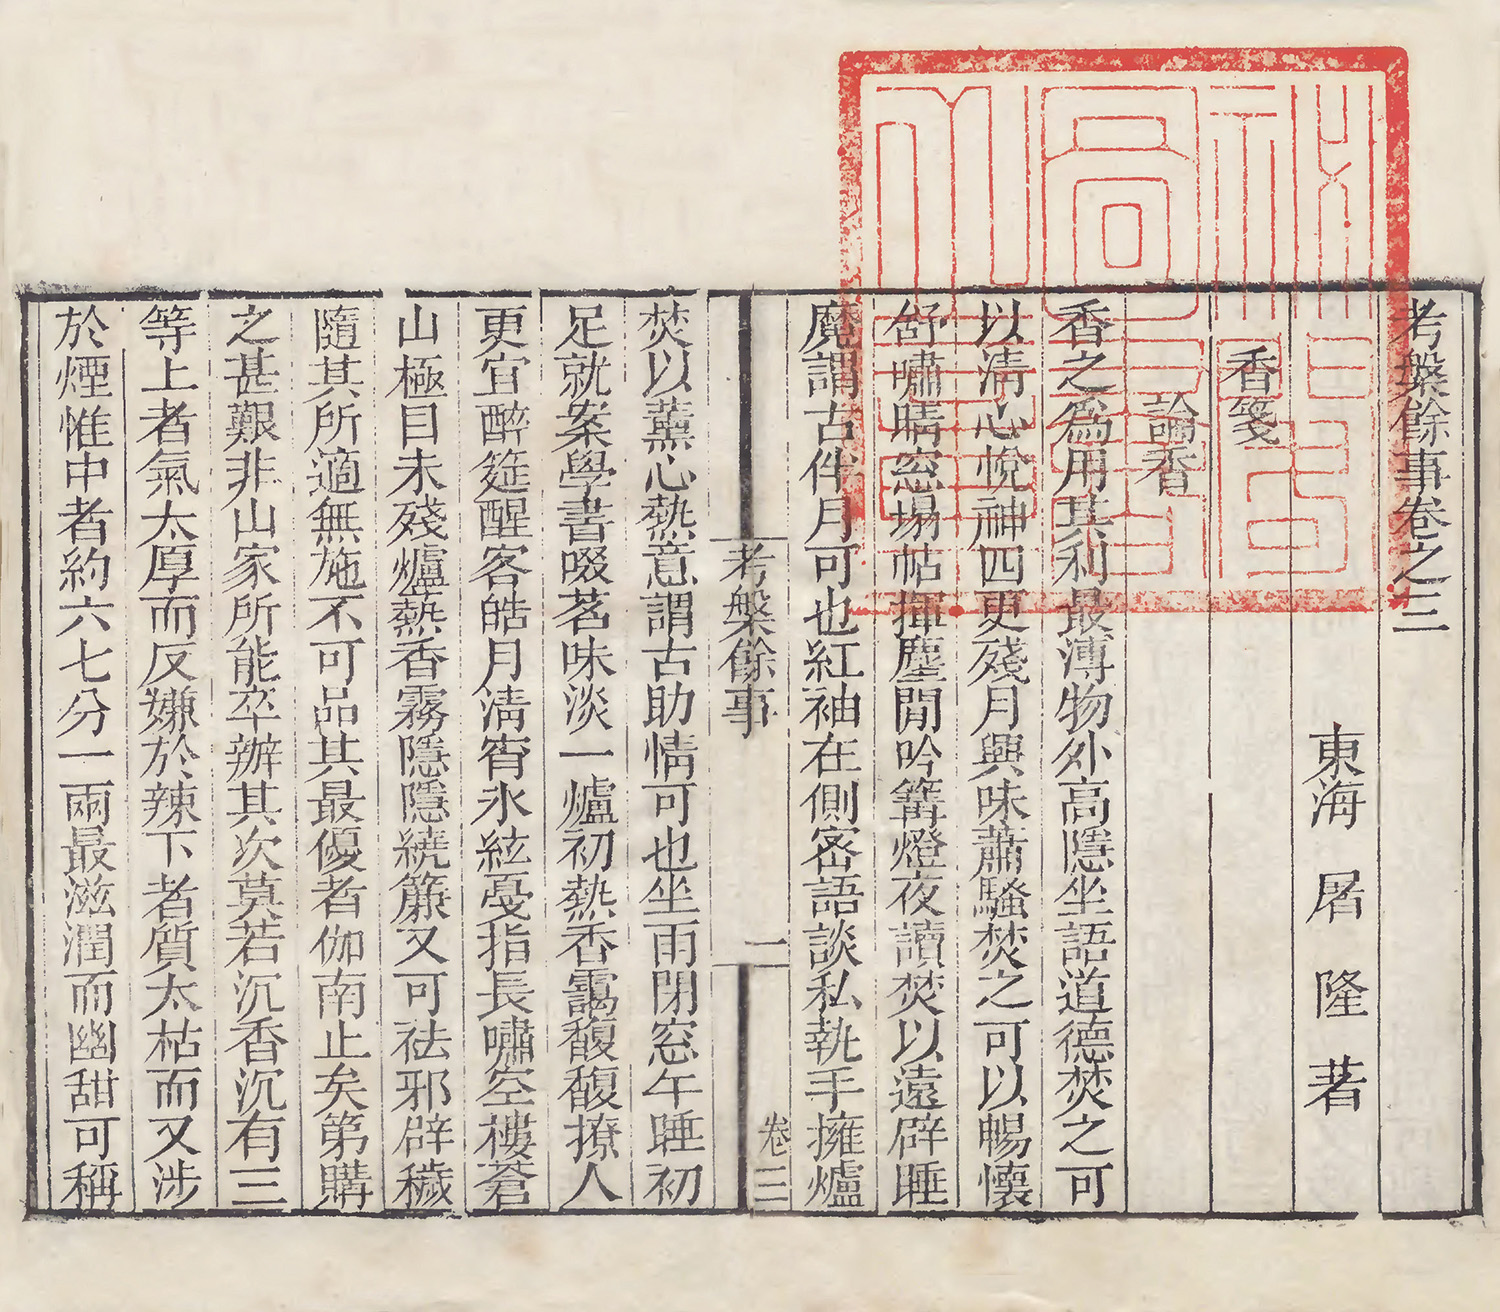 考槃餘事卷之三
東海 屠 隆 著
香箋
論香
香之爲用其利最溥物外高隱坐語道德焚之可
以淸心悅神四更殘月興味蕭騷焚之可以暢懷
舒嘯晴窓搨帖揮塵閒吟篝燈夜讀焚以遠辟睡
魔謂古伴月可也紅袖在側密語談私執手擁爐
考槃餘事 一 卷三
焚以薰心熱意謂古助情可也坐雨閉窓午睡初
足就案學書啜茗味淡一爐初熱香靄馥馥撩人
更宜醉筵醒客皓月淸宵氷絃戞指長嘯空樓蒼
山極目未殘爐爇香霧隱隱繞簾又可祛邪辟穢
隨其所適無施不可品其最優者伽南止矣第購
之甚艱非山家所能卒辦其次莫若沉香沉有三
等上者氣太厚而反嫌於辣下者質太枯而又涉
於煙惟中者約六七分一兩最滋潤而幽甜可稱